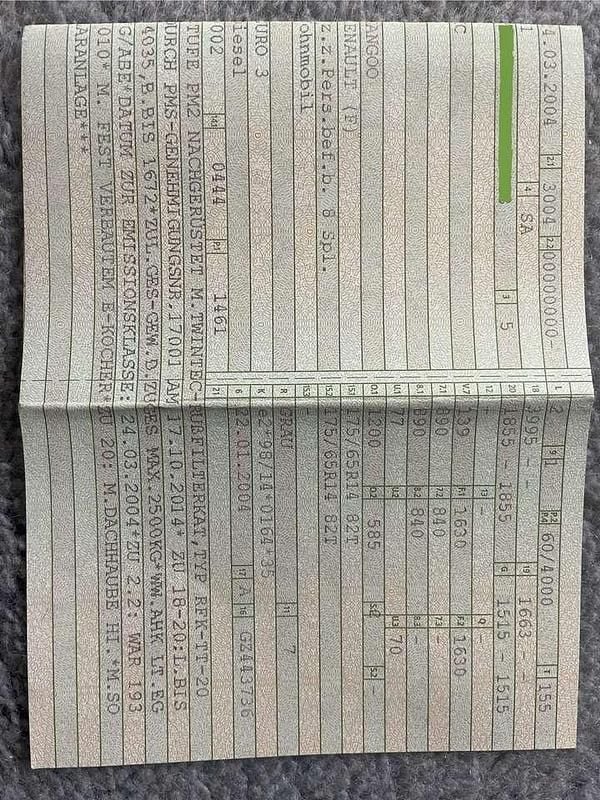 4.03.2004 2.1 3004 2.2 00000000
1 4 SA
3 5
C
ANGOO
ENAULT (F)
z.z.Pers.bef.b. 8 Spl.
ohnmobil
URO 3
iesel
002 14.1 0444 P.1 1461
L 2 9 1 P.2 P.4 60/4000 T 155
18 3995 - - 19 1663 - -
20 1855 - 1855 G 1515 - 1515
12 - 13 - Q -
V.7 139 F.1 1630 F.2 1630
7.1 890 7.2 840 7.3 -
8.1 890 8.2 840 8.3 -
U.1 77 U.2 U.3 70
O.1 1200 O.2 585 S.1 S.2 -
15.1 175/65R14 82T
15.2 175/65R14 82T
15.3
R GRAU 11 7
K e2*98/14*0164*35
6 22.01.2004 17 A 16 GZ443736
21
TUFE PM2 NACHGERÜSTET M.TWINTEC-RUßFILTERKAT,TYP RFK-TT-20
URCH PMS-GENEHMIGUNGSNR.17001 AM 17.10.2014* ZU 18-20:L.BIS
4035,B.BIS 1672*ZUL.GES-GEW.D.ZUGES MAX.2500KG*WW.AHK LT.EG
G/ABE*DATUM ZUR EMISSIONSKLASSE: 24.03.2004*ZU 2.2: WAR 193
010* M. FEST VERBAUTEM E-KOCHER*ZU 20: M.DACHHAUBE HI.*M.SO
ARANLAGE***